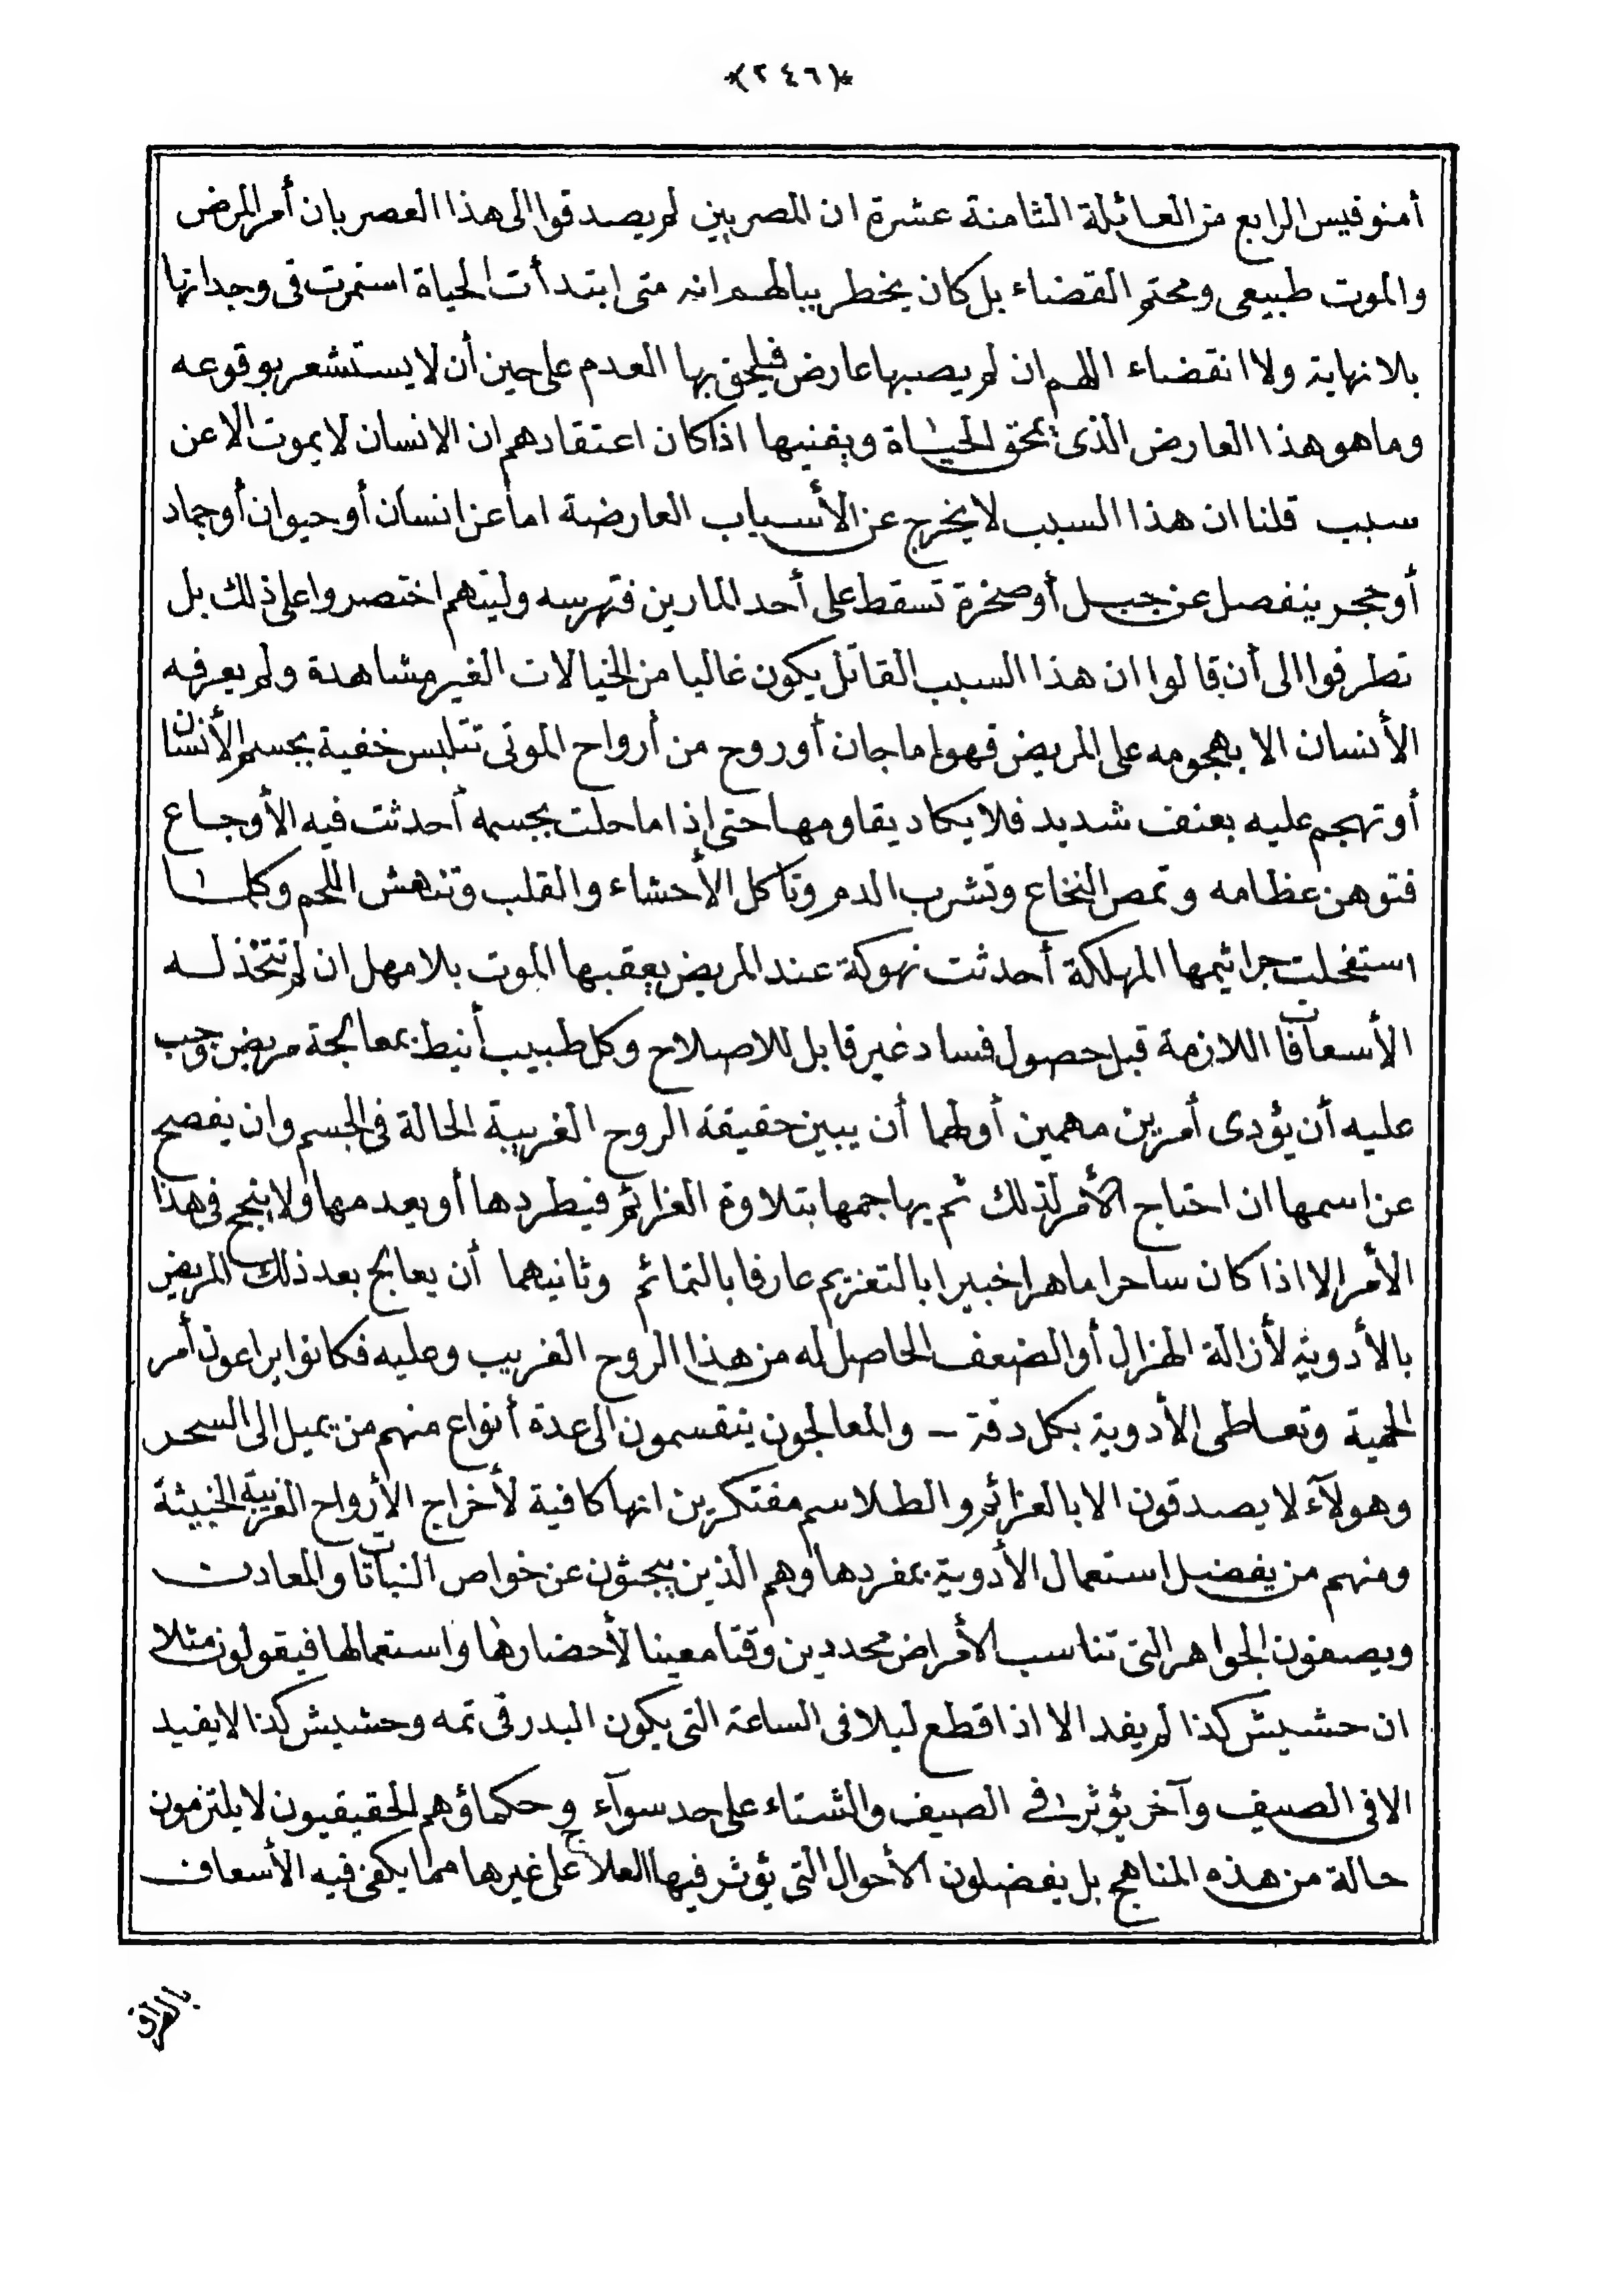 *(٢٤٦)*
أمنوفيس الرابع من العائلة الثامنة عشرة ان المصريين لم يصدقوا الى هذا العصر بان أمر المرض
والموت طبيعى ومحتم القضاء بل كان يخطر ببالهم انه متى ابتدأت الحياة استمرت فى وجداتها
بلا نهاية ولا انقضاء اللهم ان لم يصبها عارض فيلحق بها العدم على حين أن لا يستشعر بوقوعه
وما هو هذا العارض الذى يمحق الحياة ويفنيها اذا كان اعتقادهم ان الانسان لا يموت الا عن
سبب قلنا ان هذا السبب لا يخرج عن الأسباب العارضة اما عن انسان أو حيوان أو جماد
أو حجر ينفصل عن جبل أو صخرة تسقط على أحد المارين فتهرسه وليتهم اختصروا على ذلك بل
تطرفوا الى أن قالوا ان هذا السبب القاتل يكون غالبا من الخيالات الغير مشاهدة ولم يعرفه
الأنسان الا بهجومه على المريض فهو اما جان أو روح من أرواح الموتى تتلبس خفية بجسم الأنسان
أو تهجم عليه بعنف شديد فلا يكاد يقاومها حتى إذا ما حلت بجسمه أحدثت فيه الأوجاع
فتوهن عظامه وتمص النخاع وتشرب الدم وتأكل الأحشاء والقلب وتنهش اللحم وكلما
استفحلت جراثيمها المهلكة أحدثت نهوكة عند المريض يعقبها الموت بلا مهل ان لم تتخذ له
الأسعافات اللازمة قبل حصول فساد غير قابل للاصلاح وكل طبيب أنيط بمعالجة مريض وجب
عليه أن يؤدى أمرين مهمين أولهما أن يبين حقيقة الروح الغريبة الحالة فى الجسم وان يفصح
عن اسمها ان احتاج الأمر لذلك ثم يهاجمها بتلاوة العزائم فيطردها أو يعدمها ولا ينجح فى هذا
الأمر الا اذا كان ساحرا ماهرا خبيرا بالتعزيم عارفا بالتمائم وثانيهما أن يعالج بعد ذلك المريض
بالأدوية لأزالة الهزال أو الضعف الحاصل له من هذا الروح الغريب وعليه فكانوا يراعون أمر
الحمية وتعاطى الأدوية بكل دقة – والمعالجون ينقسمون الى عدة أنواع منهم من يميل الى السحر
وهولآء لا يصدقون الا بالعزائم والطلاسم مفتكرين انها كافية لأخراج الأرواح الغريبة الخبيثة
ومنهم من يفضل استعمال الأدوية بمفردها وهم الذين يبحثون عن خواص النباتات والمعادن
ويصفون الجواهر التى تناسب الأمراض محددين وقتا معينا لأحضارها واستعمالها فيقولون مثلا
ان حشيش كذا لم يفد الا اذا قطع ليلا فى الساعة التى يكون البدر فى تمه وحشيش كذا لا يفيد
الا فى الصيف وآخر يؤثر فى الصيف والشتاء على حد سوآء وحكماؤهم الحقيقيون لا يلتزمون
حالة من هذه المناهج بل يفضلون الأحوال التى يؤثر فيها العلاج على غيرها مما يكفى فيه الأسعاف